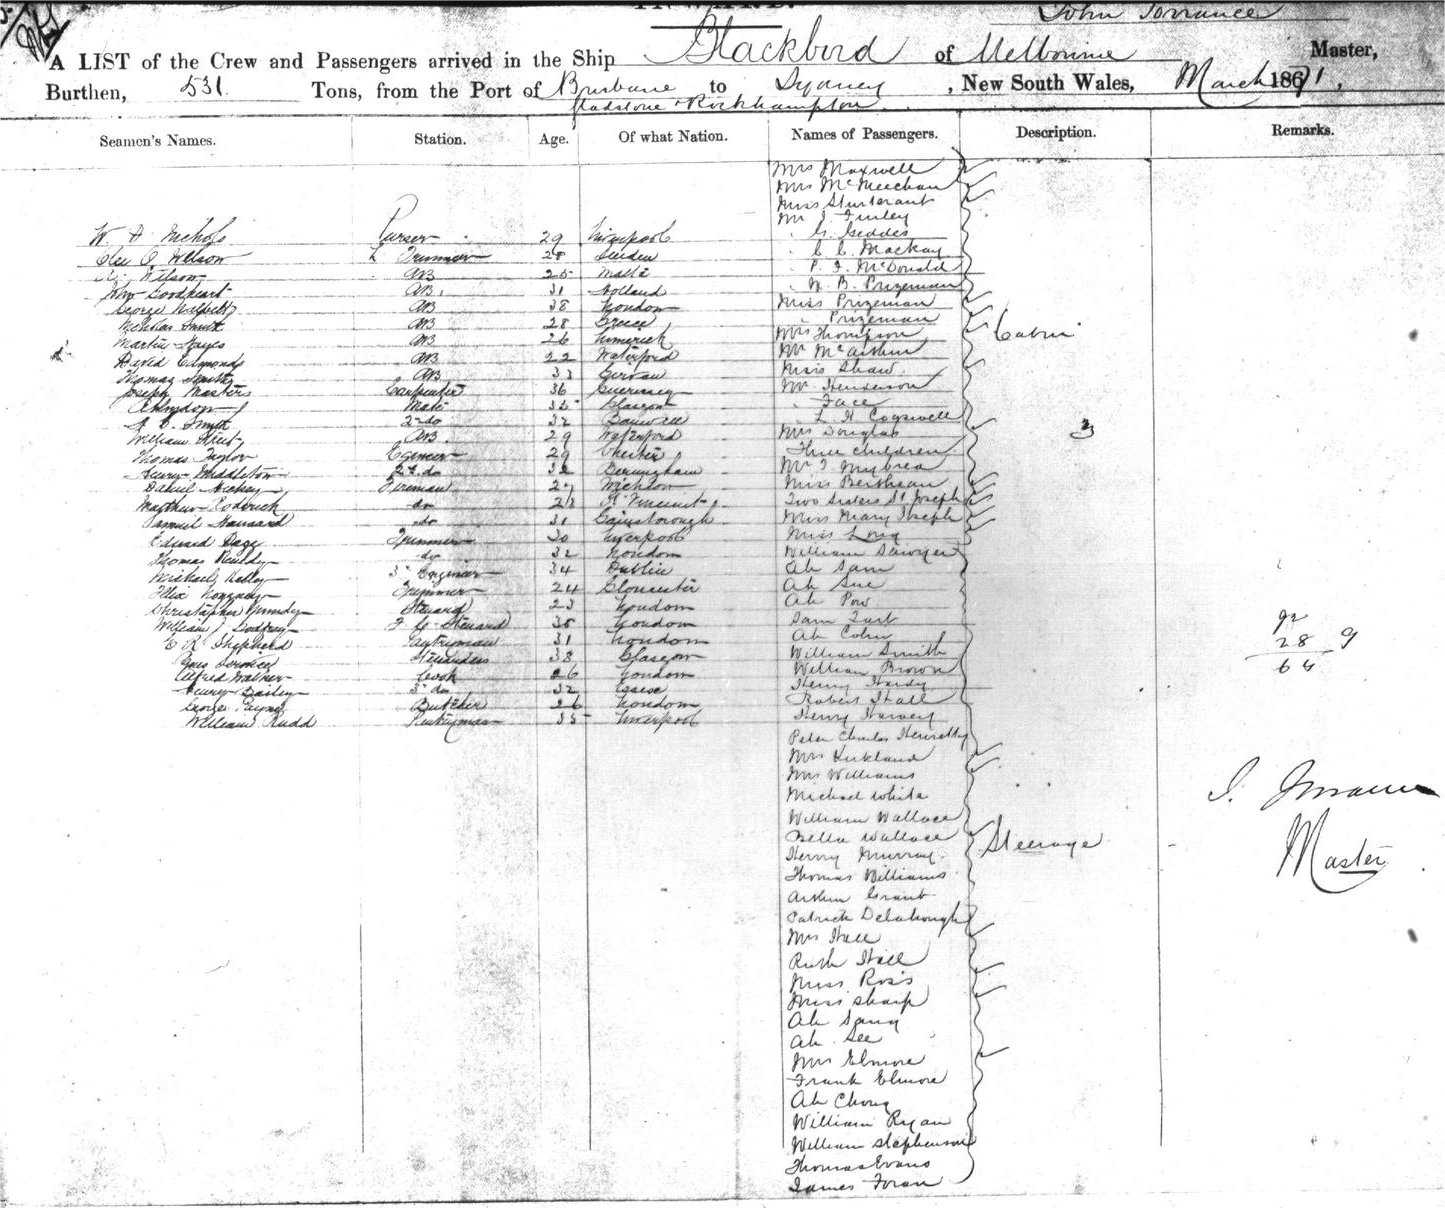 INWARD.
John Torrance
A LIST of the Crew and Passengers arrived in the Ship Blackbird of Melbourne Master,
Burthen, 531 Tons, from the Port of Brisbane to Sydney, New South Wales, March 1871,
Gladstone & Rockhampton
Seamen's Names. Station. Age. Of what Nation. Names of Passengers. Description. Remarks.
Mrs Maxwell
Mrs McMeechan
Miss Sturterant
Mr J. Finley
W. H. Nichols Purser 29 Liverpool " G. Geddes
O. Wilson Trimmer 28 " C. C. Mackay
Wilson AB 25 Malta " P. J. McDonald
John Goodheart AB. 31 Holland " W. B. Prizeman
George AB 38 London Miss Prizeman
Nicholas Smith AB 28 Greece " Prizeman
Martin Hayes AB 26 Limerick Mrs Thompson Cabin
David Edmonds AB 22 Waterford Mr McArthur
Thomas Smith AB 33 Miss Shaw
Joseph Masters Carpenter 36 Guernsey Mr Henderson
Mate 35 Glasgow " Face
Smyth 2nd do 32 " L. H. Cogswell
William AB 29 Waterford Mrs Douglas
Thomas Taylor 29 Chester Three children
Henry Middleton 2d. do 32 Mr T. Mybrea
Daniel Hickey Fireman 27 Wicklow Miss
Matthew Rodrick do 28 St Vincent Two Sisters St Joseph
Samuel Hansard do 31 Gainsborough Miss Mary Joseph
Edward Page Trimmer 30 Liverpool Miss Long
Thomas do 32 London William Sawyer
Michael Kelley 3d Engineer 34 Dublin Ah Sam
Felix Trimmer 24 Gloucester Ah Sue
Christopher Steward 23 London Ah Pow
William Godfrey Steward 30 London Sam
E R Shepherd Pantryman 31 London Ah
38 Glasgow William Smith
Alfred Walker Cook 26 London William Brown
Henry Bailey 32 Henry Hardy
George Payne Butcher 26 London Robert Hall
William Rudd Pantryman 35 Liverpool Henry Harvey
Peter Charles
Mrs Kirkland
Mrs Williams
Michael White
William Wallace
Bella Wallace Steerage
Henry Murray.
Thomas Williams
Arthur Grant
Patrick
Mrs Hall
Ruth Hall
Miss Ross
Miss Sharp
Ah
Ah See
Mrs Elmore
Frank Elmore
Ah Chong
William Ryan
William Stephenson
Thomas Evans
James Foran
92
28 9
64
J. Torrance
Master